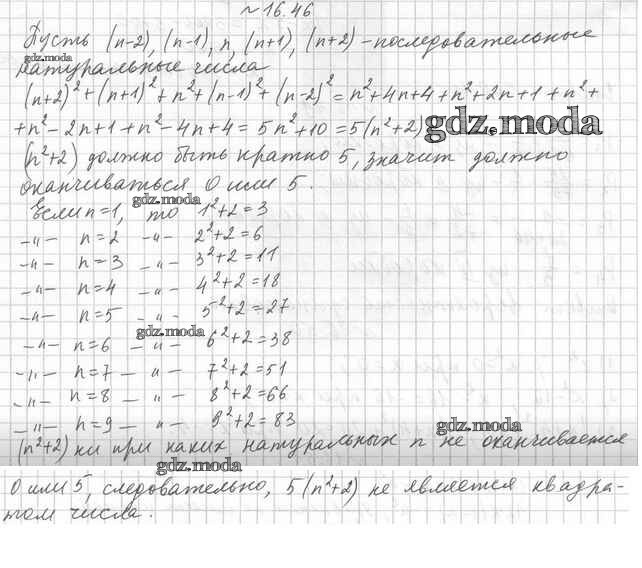 №16.46
Пусть (n-2), (n-1), n, (n+1), (n+2) - последовательные
gdz.moda
натуральные числа
(n+2)²+(n+1)²+n²+(n-1)²+(n-2)²=n²+4n+4+n²+2n+1+n²+
+n²-2n+1+n²-4n+4=5n²+10=5(n²+2) gdz.moda
(n²+2) должно быть кратно 5, значит должно
оканчиваться 0 или 5.
gdz.moda
Если n=1, то 1²+2=3
-"- n=2 -"- 2²+2=6
-"- n=3 -"- 3²+2=11
-"- n=4 -"- 4²+2=18
-"- n=5 -"- 5²+2=27
gdz.moda
-"- n=6 -"- 6²+2=38
-"- n=7 -"- 7²+2=51
-"- n=8 -"- 8²+2=66
-"- n=9 -"- 9²+2=83
gdz.moda
(n²+2) ни при каких натуральных n не оканчивается
gdz.moda
0 или 5, следовательно, 5(n²+2) не является квадра-
том числа.